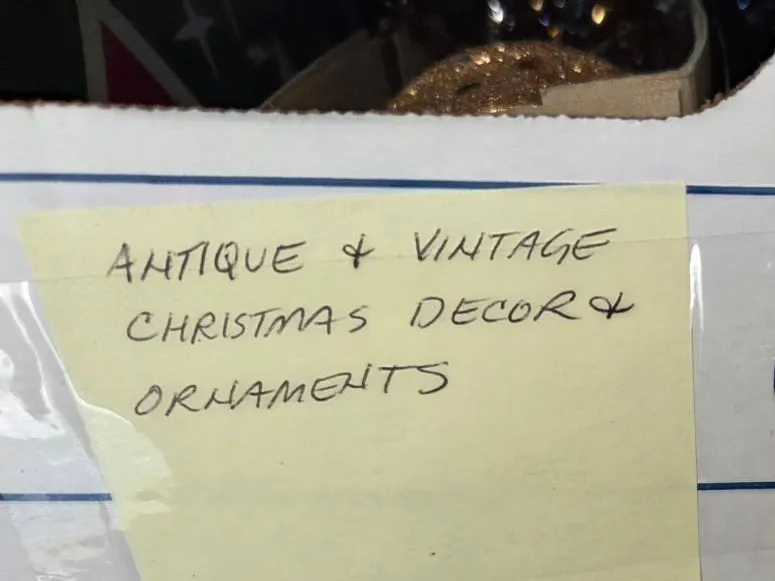 ANTIQUE & VINTAGE
CHRISTMAS DECOR &
ORNAMENTS